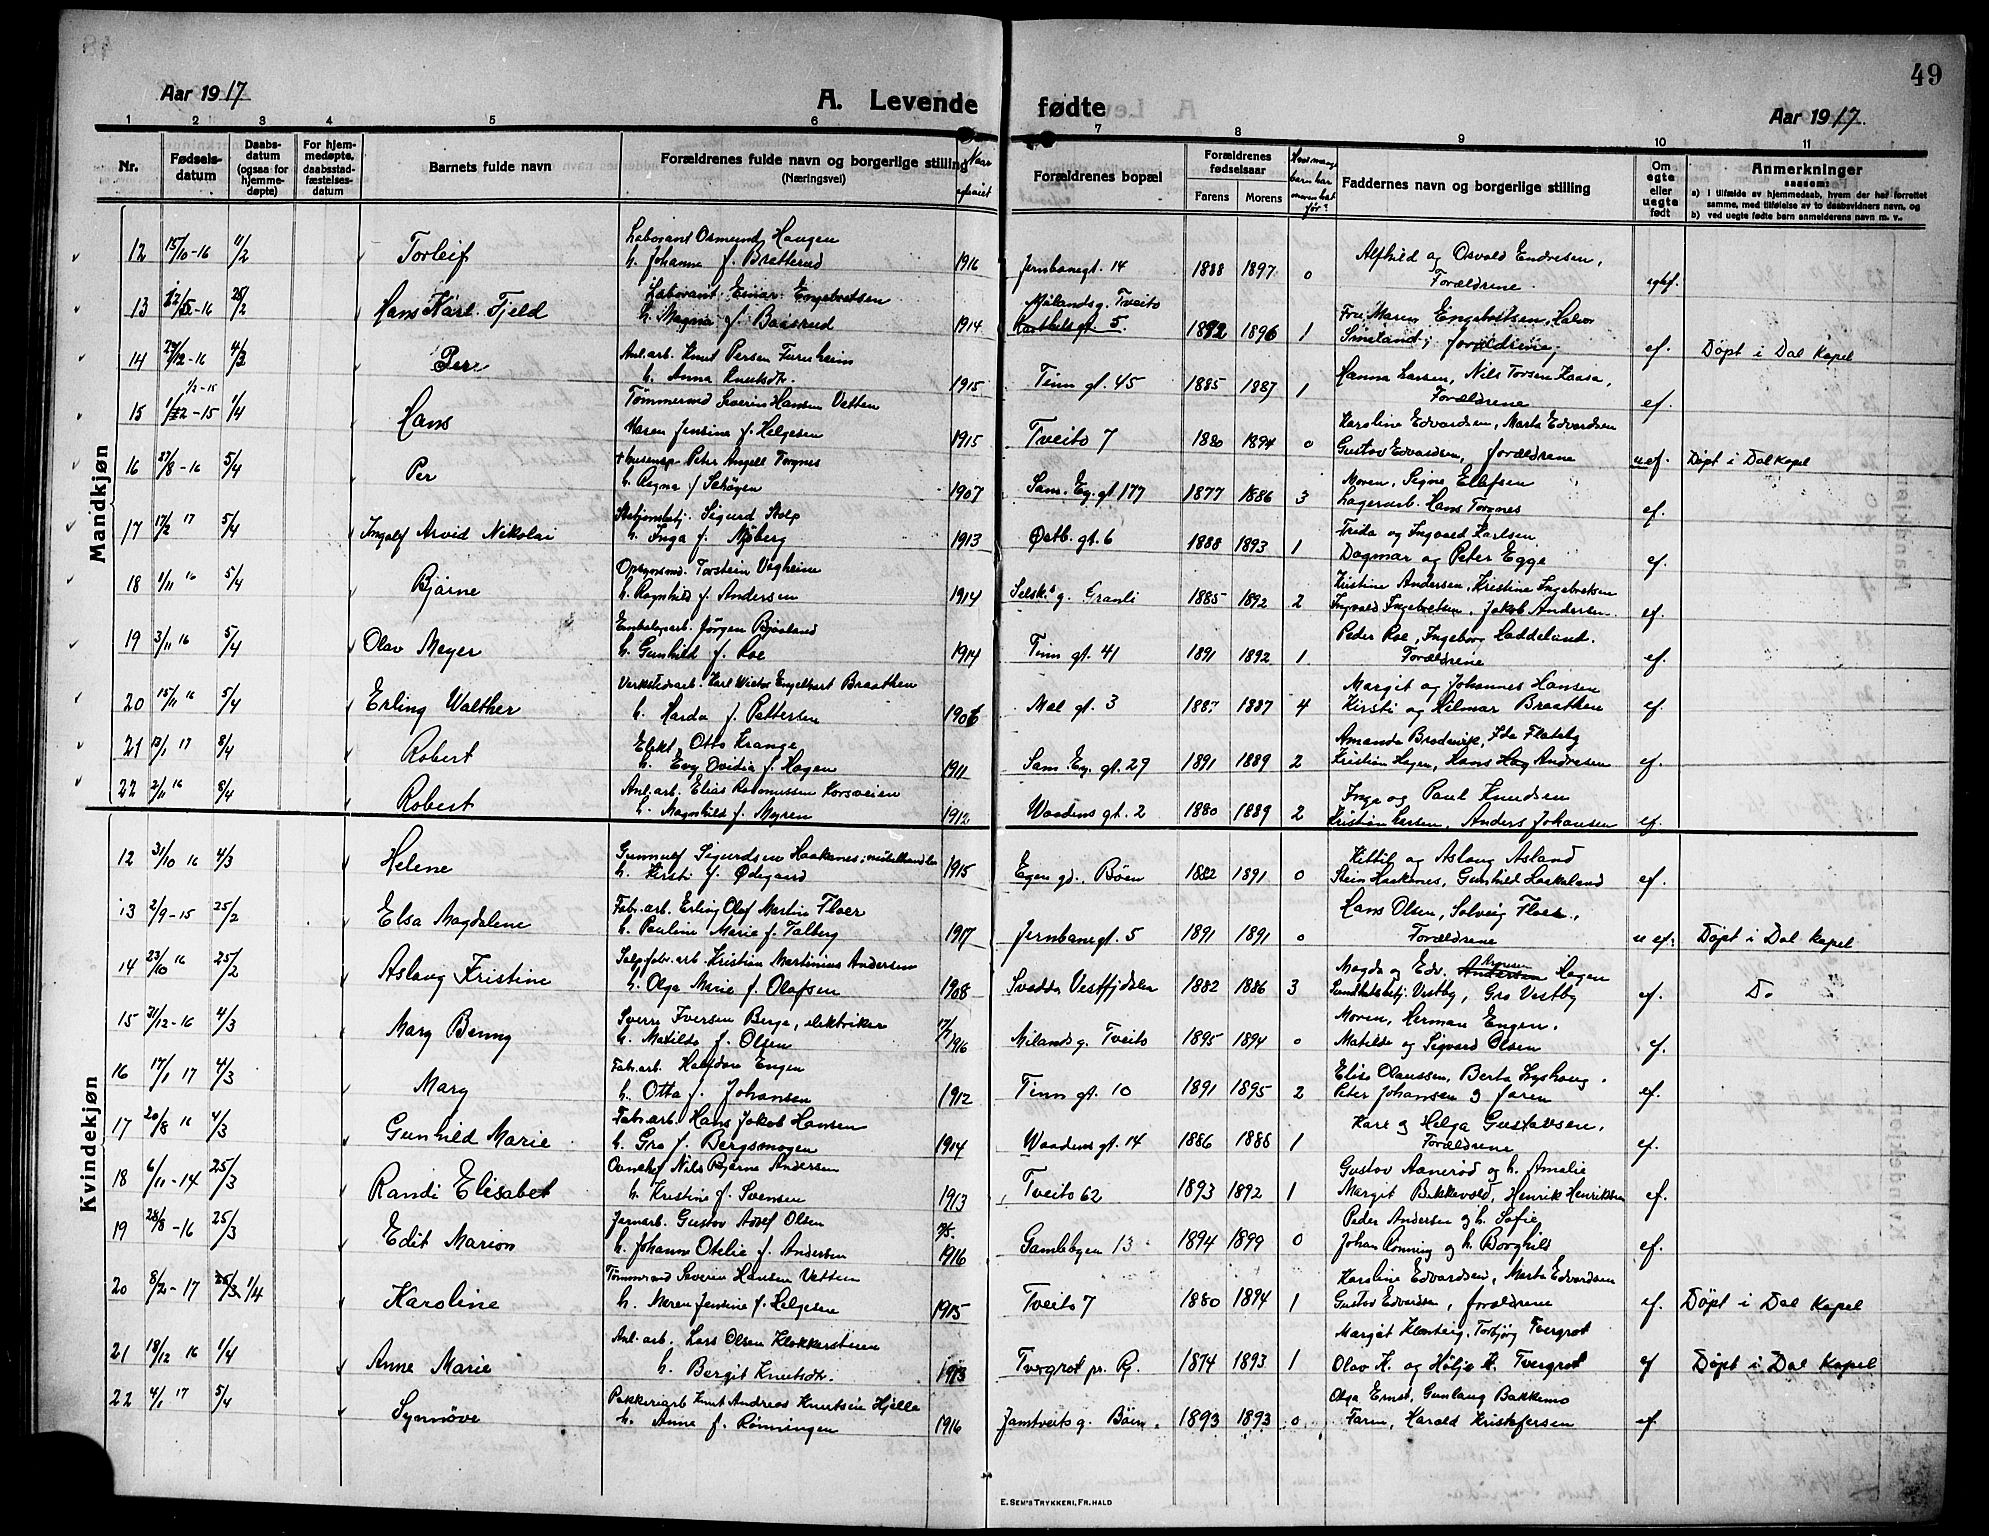 49
Aar 1917
A. Levende fødte
Aar 1917
1 2 3 4 5 6 7 8 9 10 11
Nr.
Fødsels-
datum
Daabs-
datum
(ogsaa for
hjemme-
døpte)
For hjem-
medøpte,
daabsstad-
fæstelses-
datum
Barnets fulde navn
Forældrenes fulde navn og borgerlige stilling
(Næringsvei)
Naar
Forældrenes bopæl
Forældrenes
fødselsaar
Farens Morens
Hvor mange
barn har
moren hat
før?
Faddernes navn og borgerlige stilling
Om
egte
eller
uegte
født
Anmerkninger
saasom:
a) i tilfælde av hjemmedaab, hvem der har forrettet
samme, med tilføielse av to daabsvidners navn, og
b) ved uegte fødte barn anmelderens navn m. v..
Mandkjøn
12 15/10-16 11/2 Torleif Laborant Osmund Haugen
h. Johanne f. Bratterud 1916 Jernbanegt. 14 1888 1897 0 Alfhild og Osvald Endresen,
Forældrene.
13 25/2 Hans Karl Fjeld Laborant Einar Engebretsen
h. Magna f. Baasrud 1914 Mælandsg. Tveito
5. 1892 1896 1 Fru Maren Engebretsen, Halvor
Sineland; forældrene; ef. Døpt i Dal Kapel
14 29/12-16 4/3 Per Anl.arb. Knut Persen Furuheim
h. Anna Knutsdtr. 1915 Tinn gt. 45 1885 1887 1 Hanna Larsen, Nils Torsen Kaasa,
Forældrene ef.
15 1/2-15 1/4 Hans Tømmermd Severin Hansen Vetten
Maren Jensine f. Helgesen 1915 Tveito 7 1880 1894 0 Karoline Edvardsen, Marta Edvardsen
Gustov Edvardsen, forældrene uef. Døpt i Dal Kapel
16 27/8-16 5/4 Per Peter Angell Torgnes
h. Ragna f. Schøyen 1907 Sam. Ey. gt. 177 1877 1886 3 Moren, Signe Ellefsen
Lagerarb. Hans Torgnes ef.
17 17/2 17 5/4 Ingolf Arvid Nikolai Stationsbetj. Sigurd Stolp
h. Inga f. Myberg 1913 Østb. gt. 6 1888 1893 1 Frida og Ingvald Karlsen
Dagmar og Peter Egge ef.
18 1/11 16 5/4 Bjarne Opsynsmd. Torstein Vegheim
h. Ragnhild f. Andersen 1914 Selsk.s g. Granli 1885 1892 2 Kristine Andersen, Kristine Ingebretsen
Ingvald Ingebretsen, Jakob Andersen. ef.
19 3/11 16 5/4 Olav Meyer Emballagearb. Jørgen Bjaaland
h. Gunhild f. Roe 1914 Tinn gt. 41 1891 1892 1 Peder Roe, Ingeborg Haddeland.
Forældrene ef.
20 15/11 16 5/4 Erling Walther Verkstedarb. Karl Victor Engelhart Braathen
h. Harda f. Pettersen 1906 Mæl gt. 3 1887 1887 4 Margit og Johannes Hansen
Kirsti og Hilmar Braathen ef.
21 13/1 17 8/4 Robert Elekt. Otto Krange
h. Evy Ovidia f. Hagen 1911 Sam. Ey. gt. 29 1891 1889 2 Amanda Brodervik, Ida Flateby
Kristian Hagen, Hans Hag Andresen ef.
22 2/11 16 8/4 Robert Anl.arb. Elias Rasmussen Korsveien
h. Magnhild f. Myren 1912 Waadens gt. 2 1880 1889 2 Inga og Paul Knudsen
Kristian Larsen, Anders Johansen ef.
Kvindekjøn
12 31/10 16 4/3 Helene Gunnulf Sigurdsen Haakanes; møbelhandler
h. Kirsti f. Ødegaard 1915 Egen gd., Bøen 1882 1891 0 Kittil og Aslaug Asland
Stein Haakenes, Gunhild Haakaland ef.
13 2/9-15 25/2 Elsa Magdalene Fabr.arb. Erling Olaf Martin Floer
h. Pauline Marie f. Talberg 1917 Jernbanegt. 5 1891 1891 0 Hans Olsen, Solveig Floer,
Forældrene u ef. Døpt i Dal Kapel
14 23/10 16 25/2 Aslaug Kristine Salp.fabr.arb. Kristian Martinius Andersen
h. Olga Marie f. Olafsen 1908 Svadde Vestfjdalen 1882 1886 3 Magda og Edv. Hagen
Vestby, Gro Vestby ef. Do
15 31/12-16 4/3 Mary Benny Sverre Iversen Berge, elektriker
h. Matilde f. Olsen 17/7 1916 Milands g. Tveito 1895 1894 0 Moren, Herman Engen.
Matilde og Sigvard Olsen ef.
16 17/1 17 4/3 Mary Fab.arb. Halfdan Engen
h. Otta f. Johansen 1912 Tinn gt. 10 1891 1895 2 Elise Claussen, Berta Lyshaug.
Peter Johansen og faren ef.
17 20/8 16 4/3 Gunhild Marie Fabr.arb. Hans Jakob Hansen
h. Gro f. Bergsmogen 1914 Waadens gt. 14 1886 1888 1 Kare og Helga Gustavsen.
Forældrene ef.
18 6/11-14 25/3 Randi Elisabet Ovnchef Nils Bjarne Andersen
h. Kristine f. Svensen 1913 Tveito 62 1893 1892 1 Gustov Aanerød og h. Amalie
Margit Bekkevold, Henrik Henriksen ef.
19 28/8-16 25/3 Edit Marion Jernarb. Gustov Adolf Olsen
h. Johanne Otelie f. Andersen 1916 Gamlebyen 13 1894 1899 0 Peder Andersen og h. Sofie
Johan Rønning og h. Borghild ef.
20 8/2-17 25/3 1/4 Karoline Tømmermd Severin Hansen Vetten
h. Maren Jensine f. Helgesen 1915 Tveito 7 1880 1894 1 Karoline Edvardsen, Marta Edvardsen
Gustov Edvardsen, forældrene ef. Døpt i Dal Kapel
21 18/12 16 1/4 Anne Marie Anl. arb. Lars Olsen Klokkerstuen
h. Bergit Knutsdtr. 1913 Tvergrot pr. R. 1874 1893 1 Margit Torbjørg Tvergrot
Olav H. og Hølje H. Tvergrot ef Døpt i Dal Kapel
22 4/1 17 5/4 Synnøve Pakkeriarb Knut Andreas Knutsen Hjelle
h. Anne f. Rønningen 1916 Jamtveits g. Bøen. 1893 1893 0 Olga Ernst, Gunlaug Bakkemo
Faren, Harald Kristofersen ef.
E. SEM'S TRYKKERI, FR. HALD